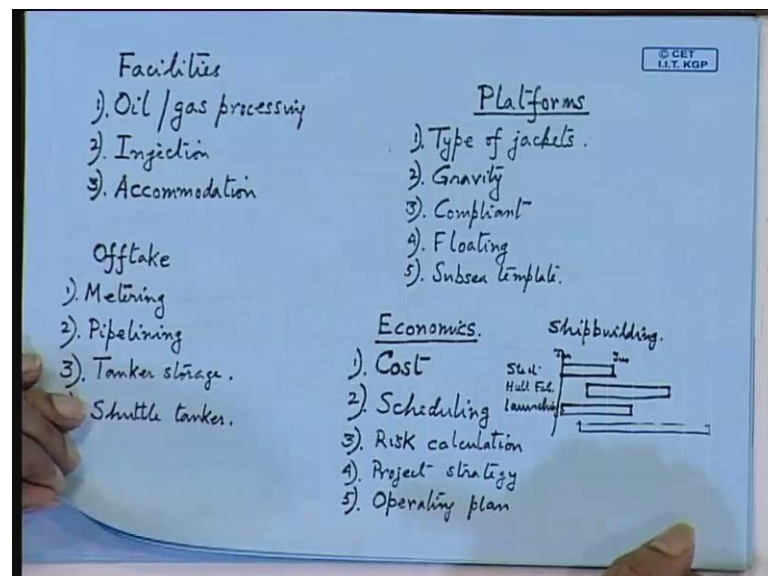 © CET
I.I.T. KGP
Facilities
1). Oil / gas processing
2). Injection
3). Accommodation
Offtake
1). Metering
2). Pipelining
3). Tanker storage.
Shuttle tanker.
Platforms
1). Type of jackets.
2). Gravity
3). Compliant
4). Floating
5). Subsea template.
Economics.
1). Cost
2). Scheduling
3). Risk calculation
4). Project strategy
5). Operating plan
Shipbuilding.
Jan
Hull Fab.
Launching